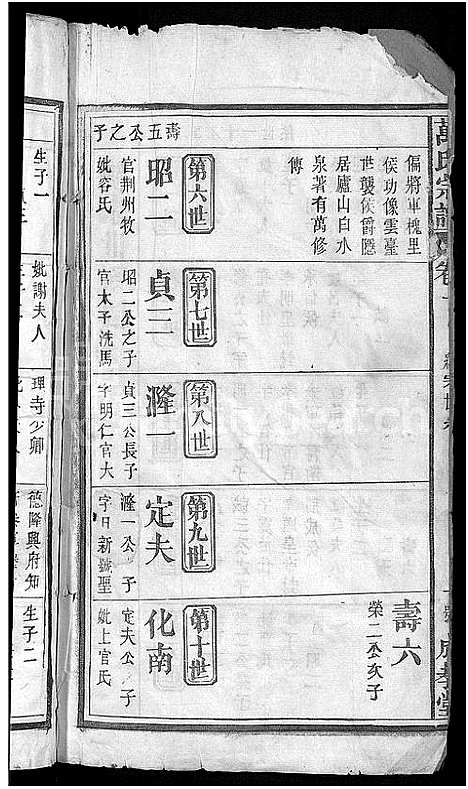 萬氏宗譜
卷一
偏將軍槐里
侯功像雲臺
世襲侯爵隱
居廬山白水
泉著有萬修
傳
壽六
榮二公次子
第六世
第七世
第八世
第九世
第十世
壽五公之子
昭二
官荆州牧
妣容氏
貞三
昭二公之子
官太子洗馬
漋一
貞三公長子
字明仁官大
定夫
漋一公子
字日新號聖
化南
定夫公子
妣上官氏
理寺少卿
德隆興府知
生子一
妣謝夫人
生子二